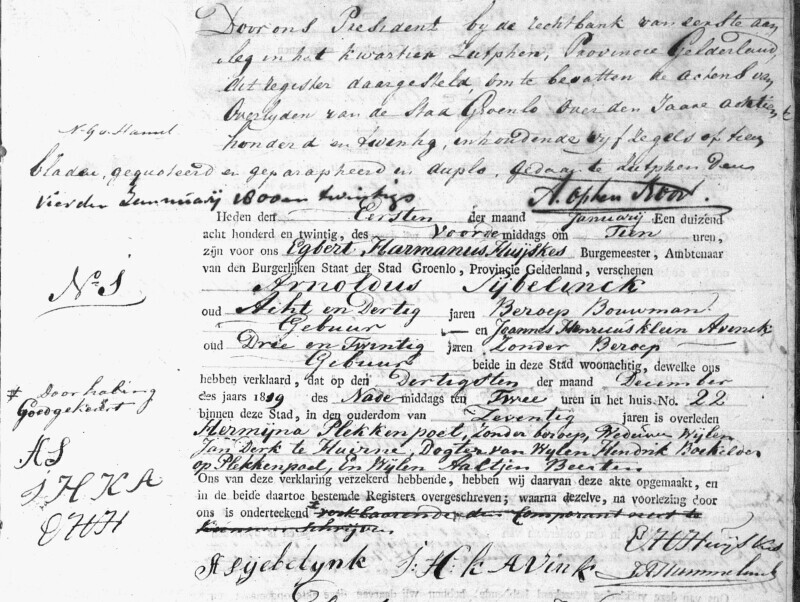 Door ons President bij de rechtbank van eerste aan
leg in het kwartier Zutphen, Provincie Gelderland,
dit register daargesteld, om te bevatten de actens van
Overlyden van de Stad Groenlo over den Jaare achtien
honderd en twintig, inhoudende vyf zegels of tien
bladen, gequoteerd en geparapheerd in duplo. Gedaan te Zutphen den
vierden Januarij 1800 en twintigs
A. op ten Noort.
Heden den Eersten der maand Januarij Een duizend
acht honderd en twintig, des Voorde middags om Tien uren,
zijn voor ons Egbert Harmanus Huijskes Burgemeester, Ambtenaar
van den Burgerlijken Staat der Stad Groenlo, Provincie Gelderland, verschenen
No. 1
Arnoldus Sijbelinck
oud Acht en Dertig jaren Beroep Bouwman
Gebuur en Joannes Henricus Klein Avinck
oud Drie en Twintig jaren Zonder Beroep
Gebuur beide in deze Stad woonachtig, dewelke ons
hebben verklaard, dat op den Dertigsten der maand December
des jaars 1819 des Nade middags ten Twee uren in het huis No. 22
binnen deze Stad, in den ouderdom van Zeventig jaren is overleden
Hermijna Plekkenpoet, Zonder beroep, Weduwe Wylen
Jan Derk te Huerne, Dogter van Wylen Hendrik
op Plekkenpoet, En Wylen Aaltjen Beerten
Ons van deze verklaring verzekerd hebbende, hebben wij daarvan deze akte opgemaakt, en
in de beide daartoe bestemde Registers overgeschreven; waarna dezelve, na voorlezing door
ons is onderteekend # verklaarende den Comparant niet te
kunnen schrijven.
# Doorhaling
Goedgekeurt
AS
J H K A
E H H
E H Huijskes
A Syebelynk J: H: k AVink